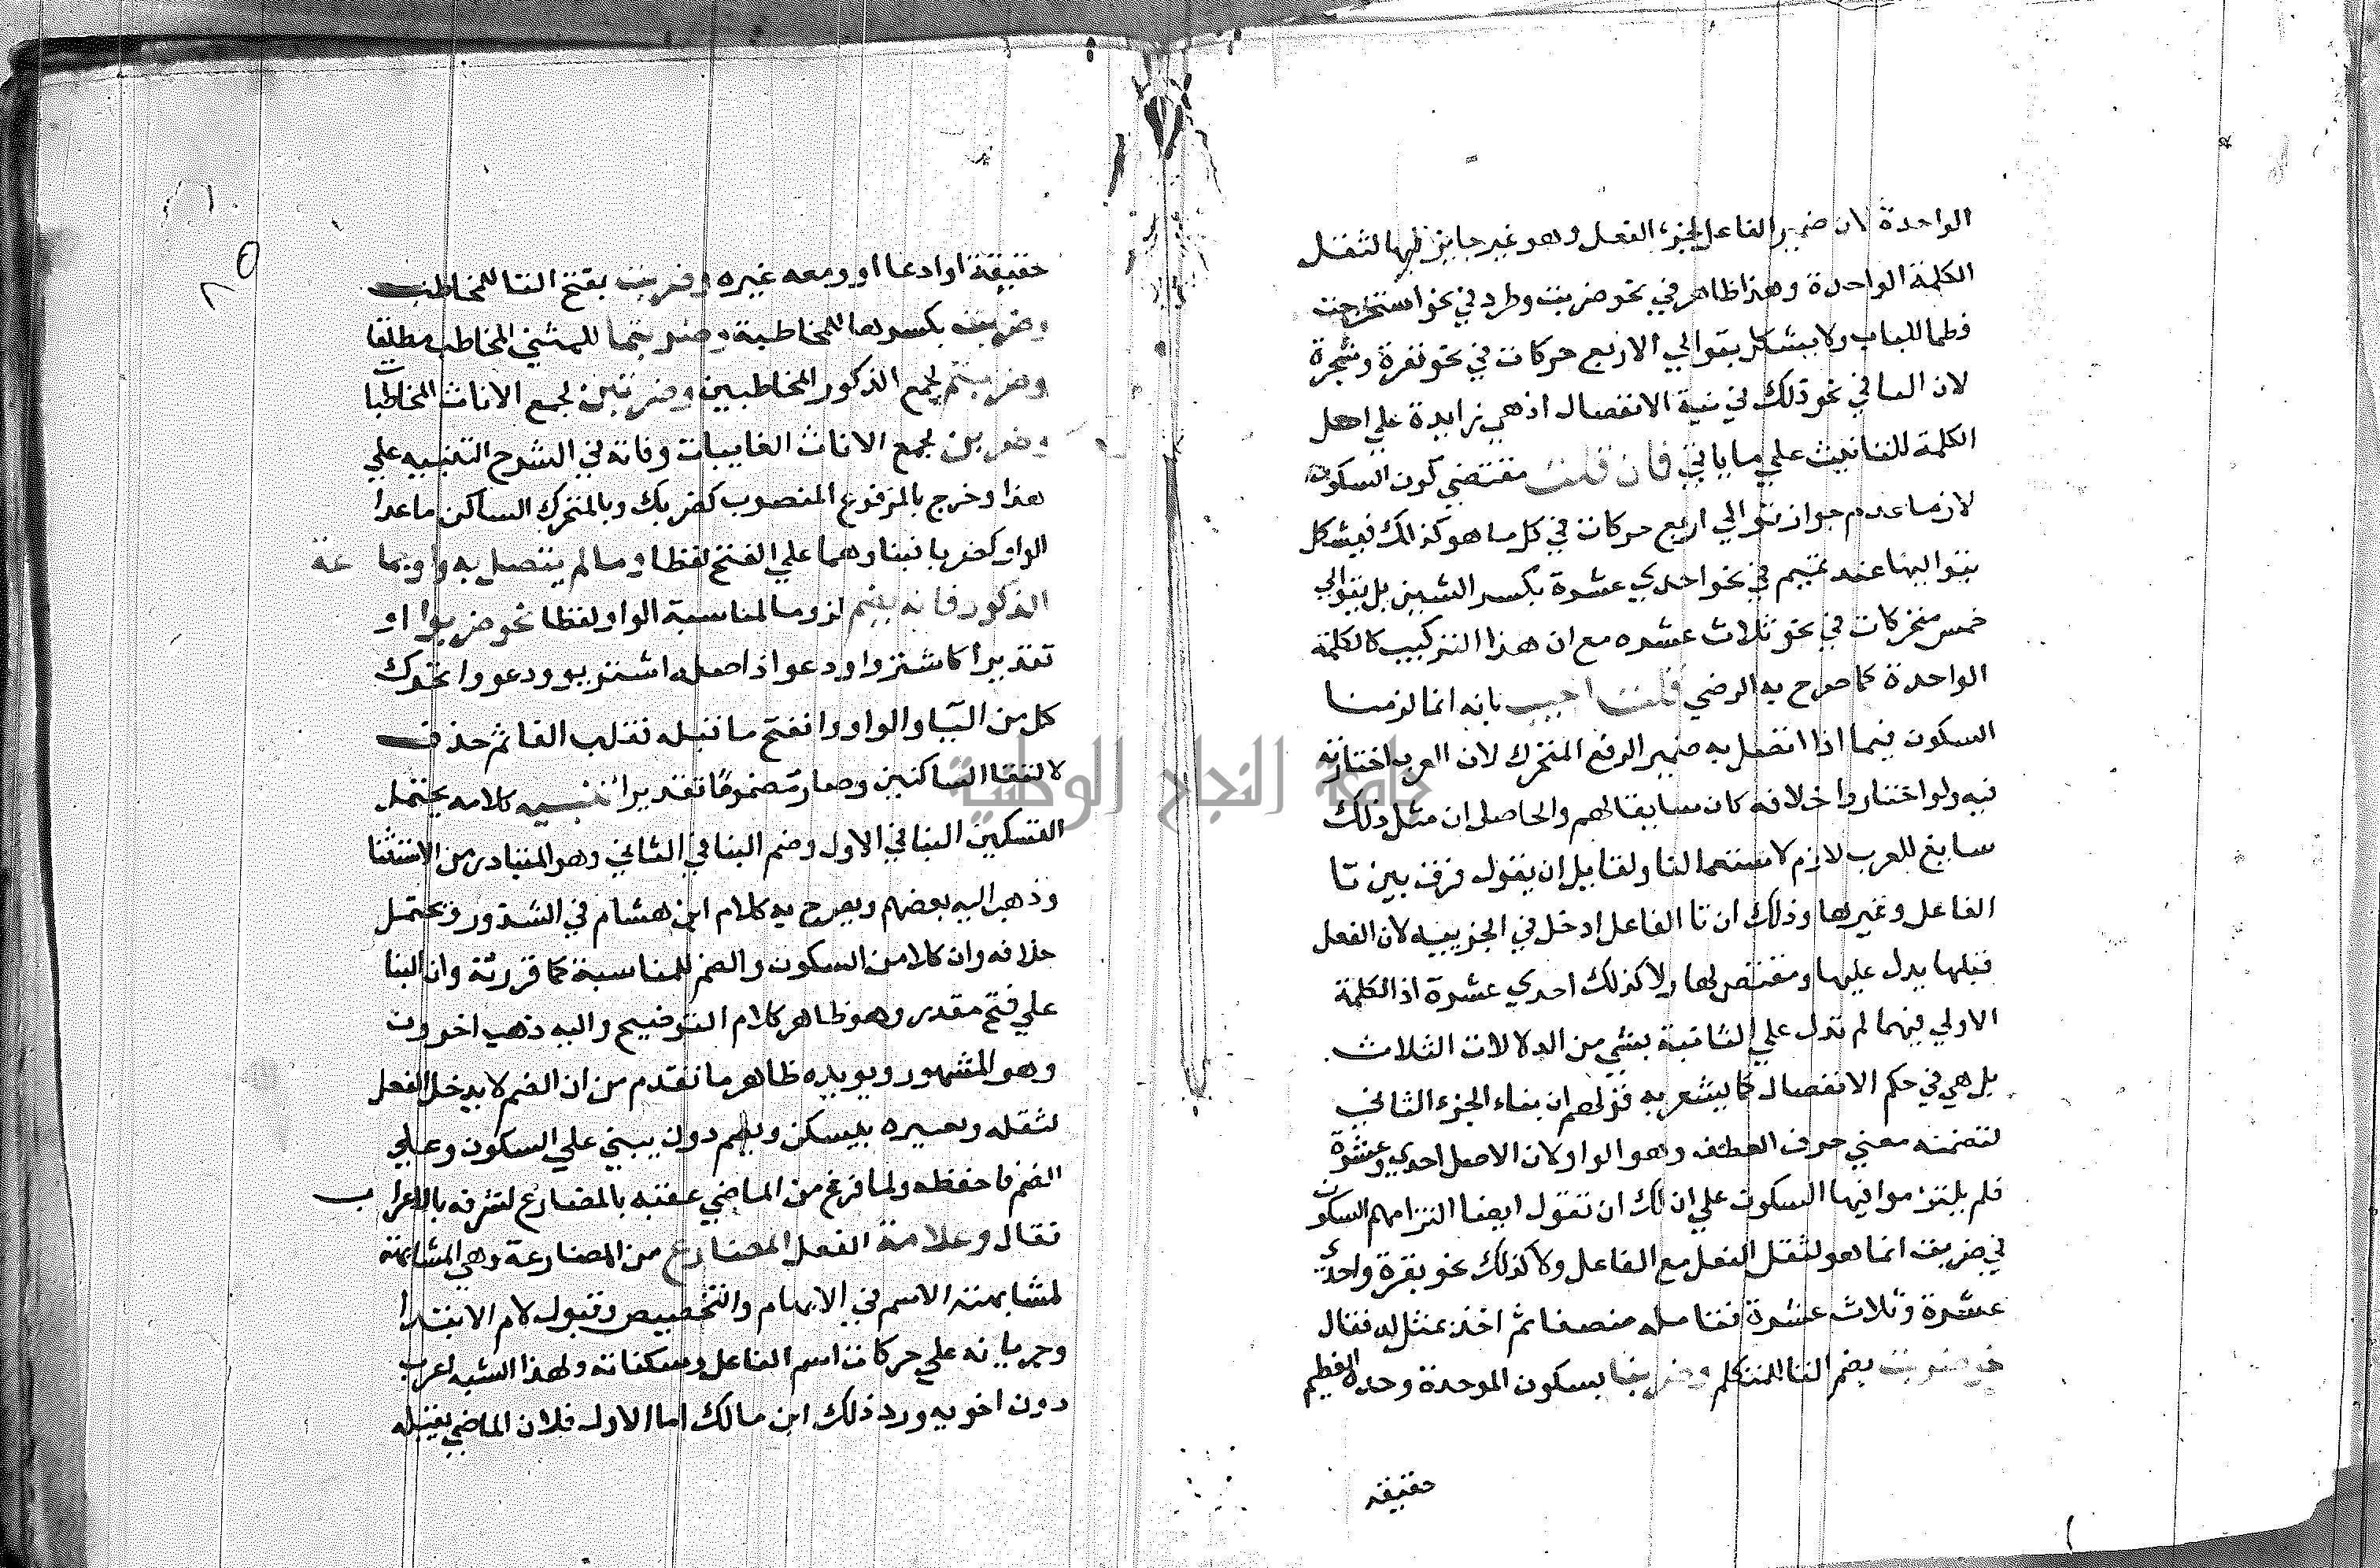 الواحدة لان ضمير الفاعل لجزء الفعل وهو غير جايز فيها لثقل
الكلمة الواحدة وهذا ظاهر في نحو ضربت وطرد في نحو استخرجت
فطما للباب ولا يشكل بتوالي الاربع حركات في نحو نفرة وشجرة
لان التا في نحو ذلك في نية الانفصال اذ هي زايدة علي اصل
الكلمة للتانيث علي ما ياتي فان قلت مقتضي كون السكون
لازما عدم جواز توالي اربع حركات في كل ما هو كذلك فيشكل
بتواليها عند تميم في نحو احدي عشرة بكسر الشين بل بتوالي
خمس متحركات في نحو ثلاث عشره مع ان هذا التركيب كالكلمة
الواحدة كما صرح به الرضي قلت اجيب بانه انما لزمنا
السكون فيما اذا اتصل به ضمير الرفع المتحرك لان العرب اختارته
فيه ولو اختاروا خلافه كان سايغا لهم والحاصل ان مثل ذلك
سايغ للعرب لازم لاستعمالنا ولقايل ان يقول فرق بين تا
الفاعل وغيرها وذلك ان تا الفاعل ادخل في الجزييه لان الفعل
قبلها يدل عليها ومقتض لها ولا كذلك احدي عشرة اذ الكلمة
الاولي فيهما لم تدل علي الثانية بشي من الدلالات الثلاث
بل هي في حكم الانفصال كما يشعر به قولهم ان بناء الجزء الثاني
لتضمنه معني حرف العطف وهو الواو لان الاصل احدي وعشرة
فلم يلتزموا فيها السكون علي ان لك ان تقول ايضا التزامهم السكون
في ضربت انما هو لثقل الفعل مع الفاعل ولا كذلك نحو بقرة واحدي
عشرة وثلاث عشرة فتامله منصفا ثم اخذ يمثل له فقال
نحو ضربت بضم التا للمتكلم وضربنا بسكون الموحدة وحده
حقيقه
حقيقة او ادعا او ومعه غيره وضربت بفتح التا للمخاطب
وضربت بكسرها للمخاطبة وضربتما للمثني المخاطب مطلقا
وضربتم لجمع الذكور المخاطبين وضربتن لجمع الاناث المخاطبات
وضربن لجمع الاناث الغايبات وفاته في الشرح التنبيه علي
هذا وخرج بالمرفوع المنصوب كضربك وبالمتحرك الساكن ما عدا
الواو كضربا فبناوهما علي الفتح لفظا وما لم يتصل به واو جماعة
الذكور فانه يضم لزوما لمناسبة الواو لفظا نحو ضربوا او
تقديرا كاشتروا ودعوا اذ اصله اشتريو ودعووا تحرك
كل من اليا والواو وانفتح ما قبله فقلب الفا ثم حذف
لالتقا الساكنين وصار مضموما تقديرا تنبيه كلامه يحتمل
التسكين البنا في الاول وضم البنا في الثاني وهو المتبادر من الاستثنا
وذهب اليه بعضهم ويصرح به كلام ابن هشام في الشذور ويحتمل
خلافه وان كلا من السكون والضم للمناسبة كما قررته وان البنا
علي فتح مقدر وهو ظاهر كلام التوضيح واليه ذهب اخرون
وهو المشهور ويويده ظاهر ما تقدم من ان الضم لا يدخل الفعل
لثقله وتعبيره بيسكن ويضم دون يبني علي السكون وعلي
الضم فاحفظه ولما فرغ من الماضي عقبه بالمضارع لشرفه بالاعراب
فقال وعلامة الفعل المضارع من المضارعة وهي المشابهة
لمشابهته الاسم في الابهام والتخصيص وقبول لام الابتدا
وجريانه علي حركات اسم الفاعل وسكناته ولهذا الشبه اعرب
دون اخويه ورد ذلك ابن مالك اما الاول فلان الماضي يقبله
جامعة النجاح الوطنية